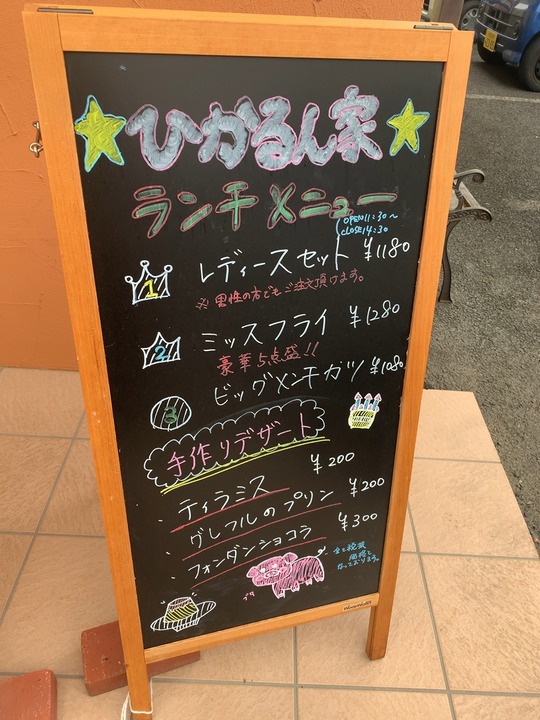 ひかるん家
ランチメニュー
OPEN 11:30～
CLOSE 14:30
1 レディースセット ¥1180
※男性の方でもご注文頂けます。
2 ミックスフライ ¥1280
豪華5点盛!!
3 ビッグメンチカツ ¥1080
手作りデザート
・ティラミス ¥200
・グレフルのプリン ¥200
・フォンダンショコラ ¥300
全て税込
価格と
なっております。